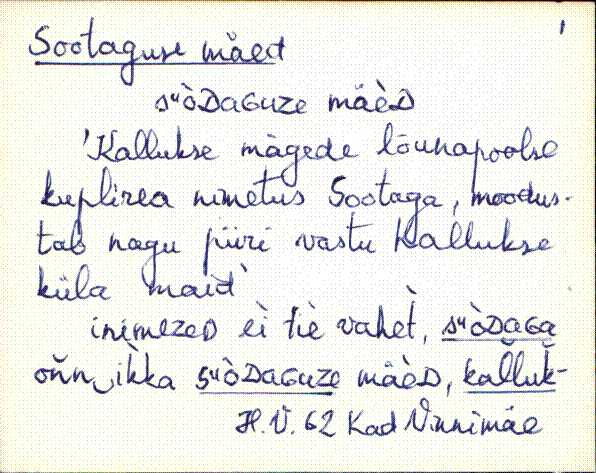 1
Sootaguse mäed
sᵘòDaGuze mäèD
'Kallukse mägede lõunapoolse
kuplirea nimetus Sootaga, moodus-
tab nagu piiri vastu Kallukse
küla maid'
inimezeD ei tiè vahèt, sᵘòDaGa
oňn‿ikka sᵘòDaGuze mäèD, kǎlluk-
H.V. 62 Kad Vinnimäe